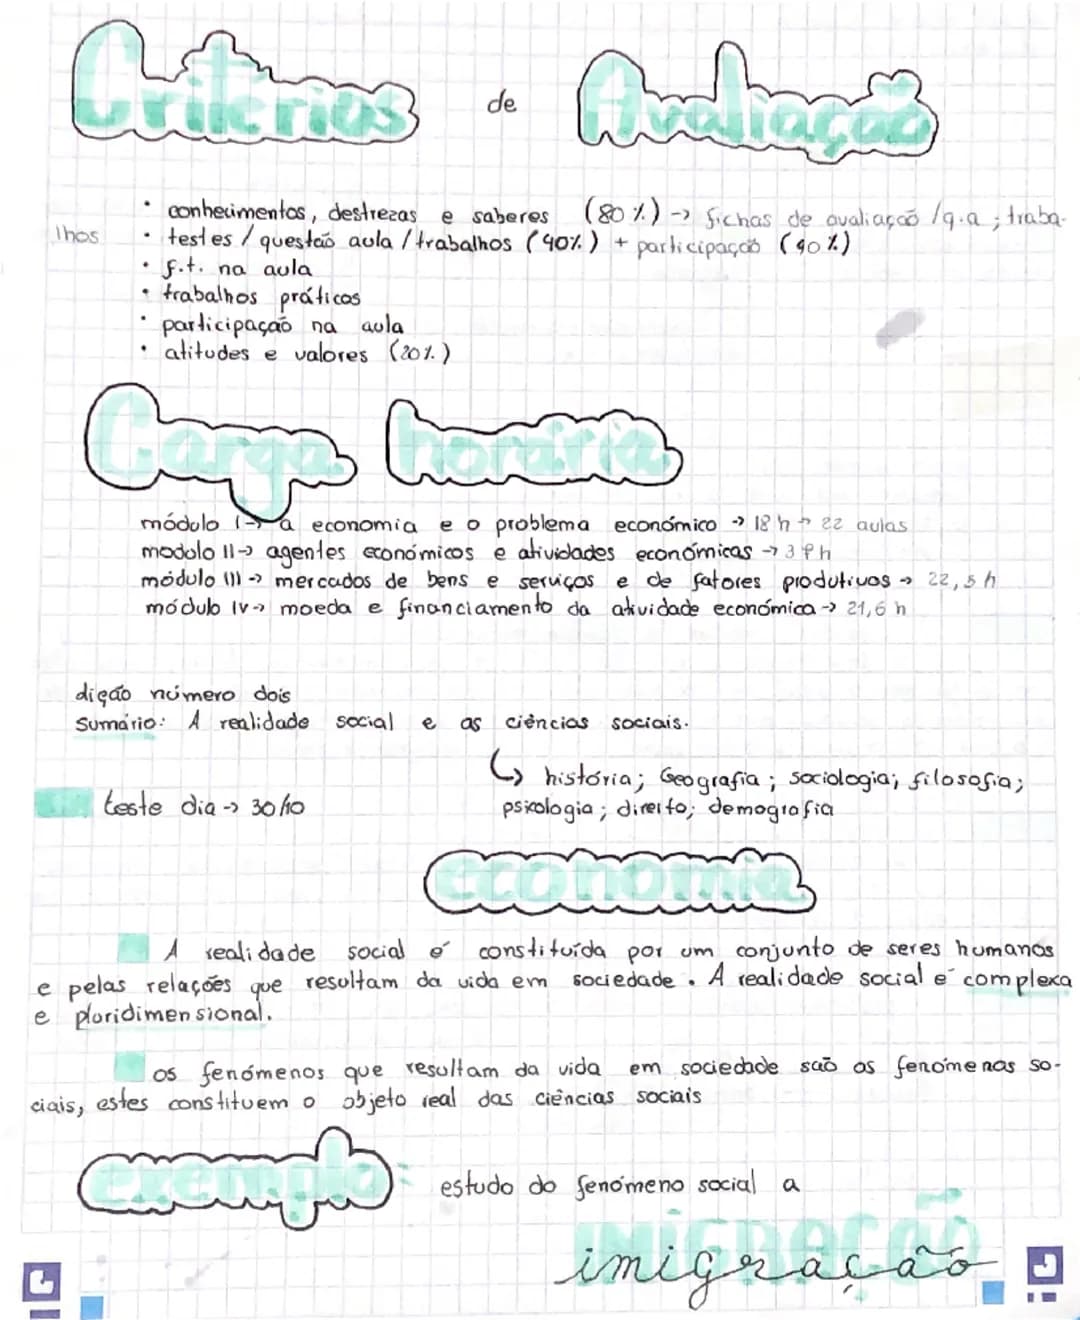 Critérios de Avaliação
• conhecimentos, destrezas e saberes (80%) -> fichas de avaliação /q.a ; traba-
lhos
• testes / questão aula / trabalhos (40%) + participação (40%)
• f.t. na aula
• trabalhos práticos
• participação na aula
• atitudes e valores (20%)
Carga horária
módulo I -> a economia e o problema económico -> 18 h -> 22 aulas
modulo II -> agentes económicos e atividades económicas ->
módulo III -> mercados de bens e serviços e de fatores produtivos -> 22,5 h
módulo IV -> moeda e financiamento da atividade económica -> 21,6 h
dição número dois
Sumário: A realidade social e as ciências sociais.
↳ história; Geografia; sociologia; filosofia;
teste dia -> 30/10
psicologia; direito; demografia
economia
A realidade social é constituída por um conjunto de seres humanos
e pelas relações que resultam da vida em sociedade. A realidade social é complexa
e pluridimensional.
os fenómenos que resultam da vida em sociedade são os fenómenos so-
ciais, estes constituem o objeto real das ciências sociais
exemplo: estudo do fenómeno social a
IMIGRAÇÃO
imigração